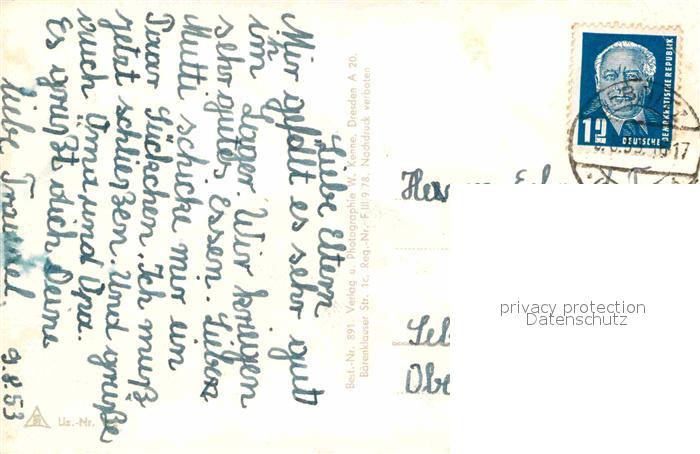 Liebe Eltern
Mir gefällt es sehr gut
im Lager. Wir kriegen
sehr gutes Essen. Liebes
Mutti schicke mir ein
Paar Säckchen. Ich muß
jetzt schließen. Und grüße
auch Oma und Opa.
Es grüßt dich Deine
liebe Traudel
9.8.53
Best.-Nr. 891 Verlag u. Photographie W. Kenne, Dresden A 20.
Bärenklauser Str. 1c, Reg.-Nr.: F III 9 78. Nachdruck verboten
Liz.-Nr.
12
DEUTSCHE
DEMOKRATISCHE REPUBLIK
privacy protection
Datenschutz